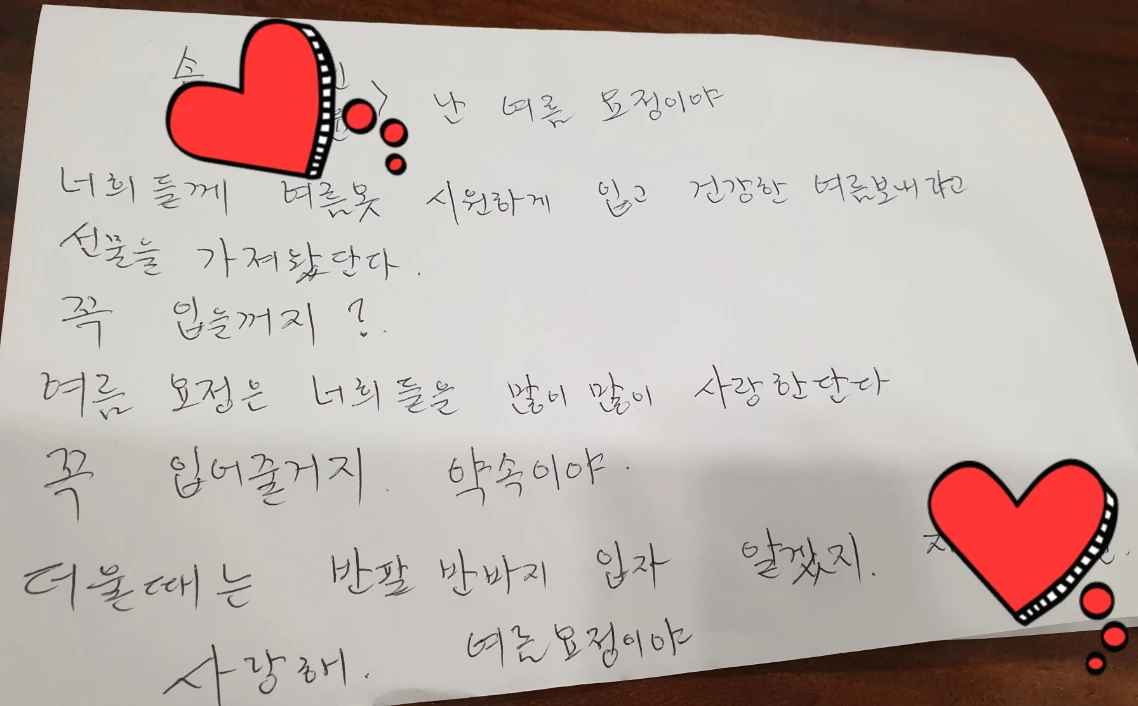 난 여름 요정이야
너희들께 여름옷 시원하게 입고 건강한 여름보내라고
선물을 가져왔단다.
꼭 입을꺼지?
여름 요정은 너희들을 많이 많이 사랑한단다
꼭 입어줄거지. 약속이야.
더울때는 반팔 반바지 입자 알겠지.
사랑해. 여름요정이야